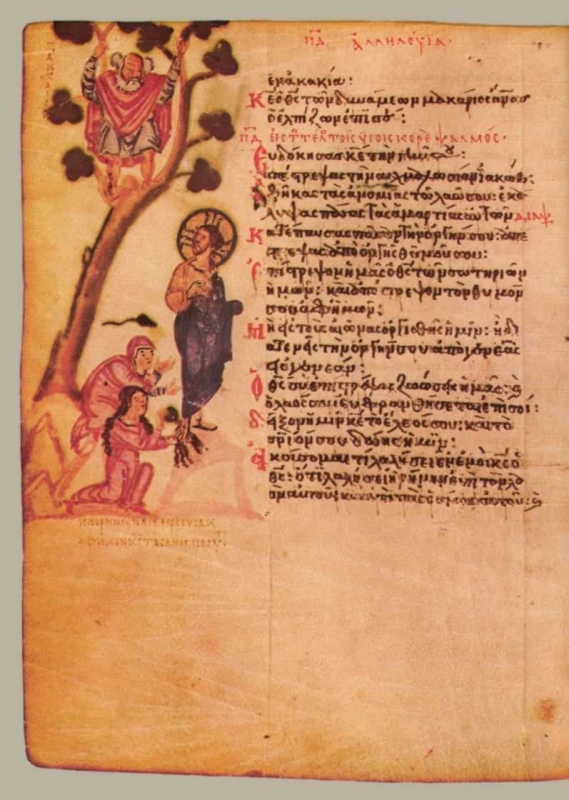 πδ ἀλληλούϊα·
ἐν ἀκακία:
Κε ὁ θς τῶν δυνάμεων μακάριος ανος
ὁ ἐλπίζων ἐπὶ σέ:
πδ εἰς τὸ τέλος τοῖς υἱοῖς κορὲ ψαλμός·
Εὐδόκησας κε τὴν γῆν σου:
ἀπέστρεψας τὴν αἰχμαλωσίαν ἰακώβ:
Ἀφῆκας τὰς ἀνομίας τῶ λαῶ σου: ἐκά
λυψας πάσας τὰς ἁμαρτίας αὐτῶν διαψ
Κατέπαυσας πᾶσαν τὴν ὀργήν σου: ἀπέ
στρεψας ἀπὸ ὀργῆς θυμοῦ σου:
Ἐπίστρεψον ἡμᾶς ὁ θς τῶν σωτηρίων
ἡμῶν: καὶ ἀπόστρεψον τὸν θυμόν
σου ἀφ ἡμῶν:
Μὴ εἰς τοὺς αἰῶνας ὀργισθῆς ἡμῖν: ἢ δι
ατενεῖς τὴν ὀργήν σου ἀπὸ γενεᾶς
εἰς γενεάν:
Ὁ θς σὺ ἐπιστρέψας ζωώσεις ἡμᾶς: ϗ
ὁ λαός σου εὐφρανθήσεται ἐπὶ σοί:
δεῖξον ἡμῖν κε τὸ ἔλεός σου: καὶ τὸ
σριόν σου δώης ἡμῖν:
Ἀκούσομαι τί λαλήσει ἐν ἐμοὶ κς ὁ
θς: ὅτι λαλήσει εἰρήνην ἐπὶ τὸν λα
ὸν αὐτοῦ: καὶ ἐπὶ τοὺς ὁσίους αὐτοῦ: ϗ